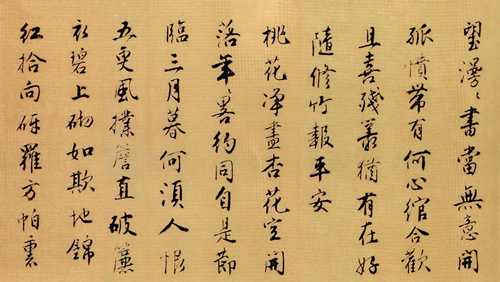 望漫々書當無意開
孤憤帶有何心綰合歡
且喜殘叢猶有在好
隨修竹報平安
桃花淨盡杏花空開
落年々畧約同自是節
臨三月暮何須人恨
五更風撲簷直破簾
衣碧上砌如欺地錦
紅拾向砑羅方帕裹